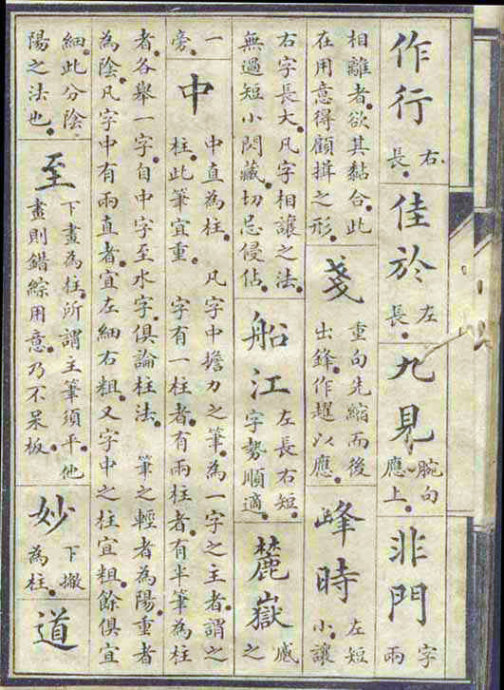 作行
右
長。
佳於
左
長。
九見
腕向
應上。
非門
字
兩
相離者。欲其黏合。此
在用意得顧揖之形。
戔
重勾先縮而後
出鋒。作趯以應。
峰時
左短
小讓
右字長大。凡字相讓之法。
無過短小閃藏。切忌侵佔。
船江
左長右短。
字勢順適。
麓嶽
之
一
旁。
中
中直為柱。凡字中擔力之筆為一字之主者。謂之
柱。此筆宜重。字有一柱者。有兩柱者。有半筆為柱
者。各舉一字。自中字至水字。俱論柱法。筆之輕者為陽。重者
為陰。凡字中有兩直者。宜左細右粗。又字中之柱宜粗。餘俱宜
細。此分陰
陽之法也。
至
下畫為柱。所謂主筆須平。他
畫則錯綜用意。乃不呆板。
妙
下撇
為柱。
道